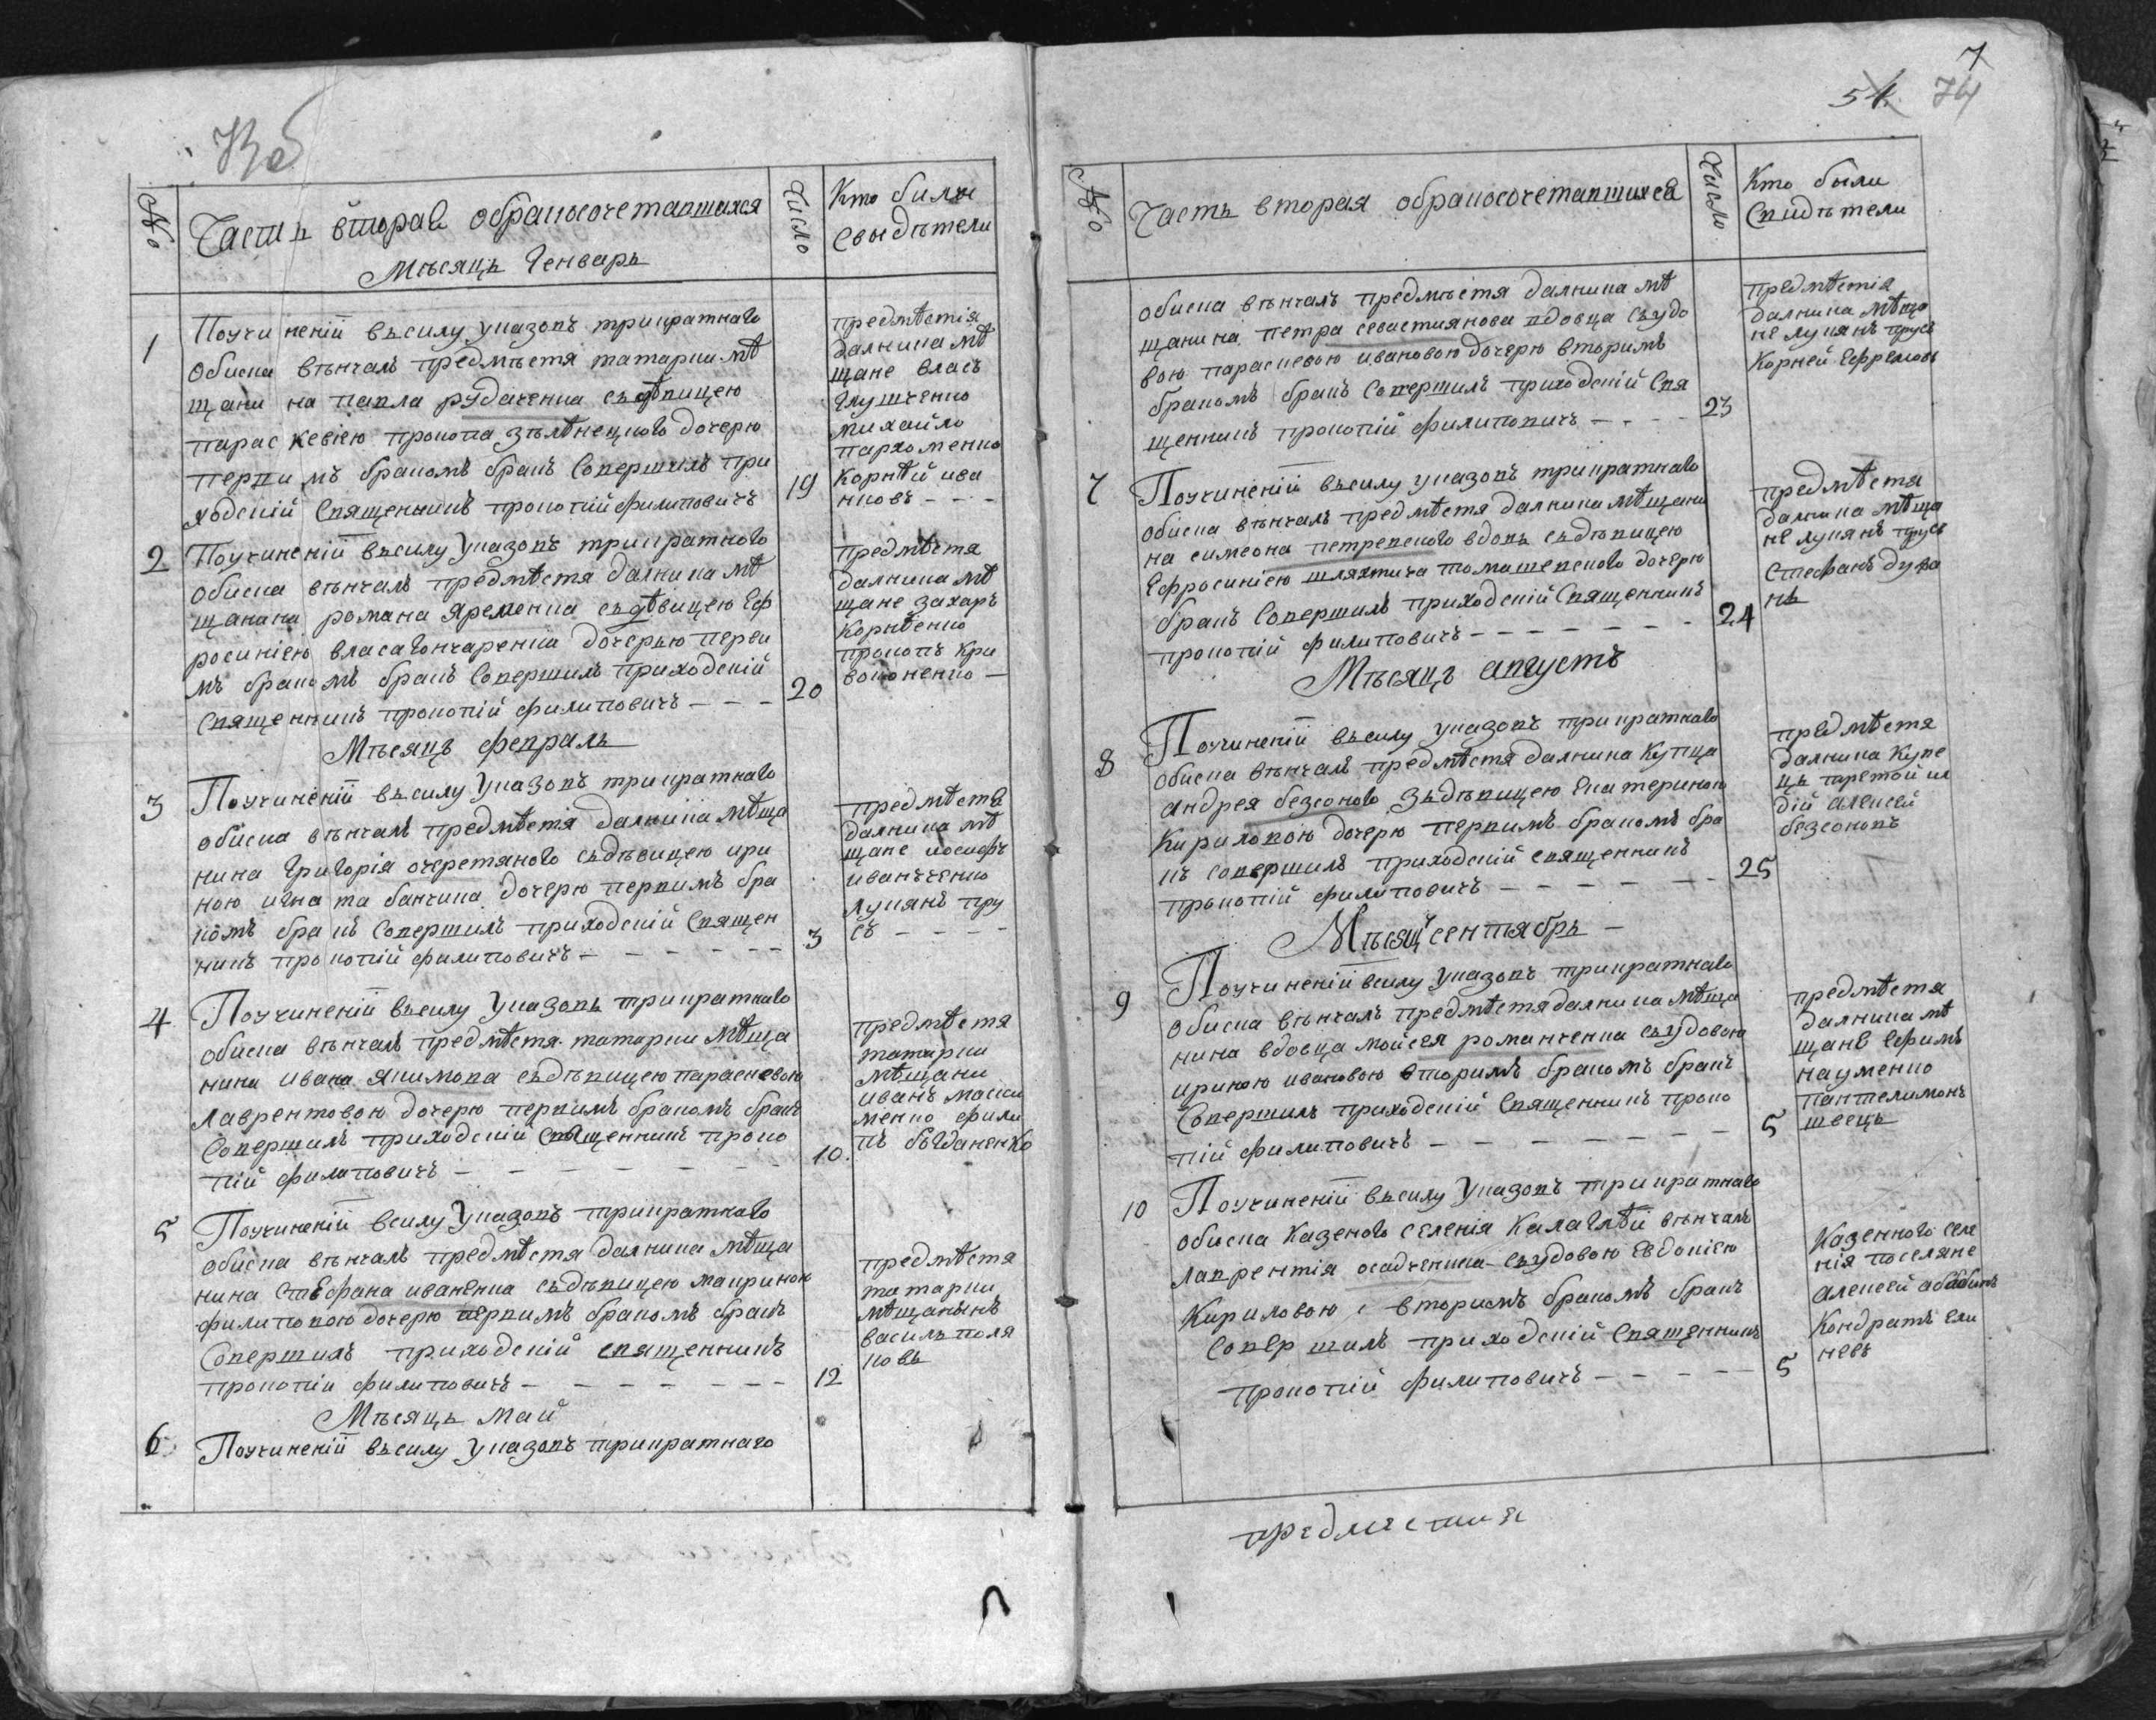 73 об
№
Часть вторая обракосочетавшихся
Мѣсяцъ Генварь
Число
Кто били
Свыдѣтели
1
Поучиненій въсилу указовъ трикратнаго
обиска вѣнчалъ предмѣстя татарки мѣ
щани на павла рудаченка сьдѣвицею
парас кевією прокопа зѣлѣнецкого дочерю
перви мъ бракомъ бракъ Совершилъ при
ходскій Священникъ прокопій филиповичъ
19
предмѣстія
далника мѣ
щане власъ
глущенко
михайло
пархоменко
Корнѣй ива
нковъ - - -
2
Поучиненій въсилу Указовъ трикратного
обиска вѣнчалъ предмѣстя далника мѣ
щанина романа яременка сьдѣвицею Еф
росинією власагончаренка дочерью перви
мъ брако мъ бракъ Совершилъ приходскій
Священникъ прокопій филиповичъ - - -
20
предмѣстя
далника мѣ
щане захаръ
Корнѣенко
прокопъ кри
воконенко -
Мѣсяцъ февраль
3
Поучиненій въсилу Указовъ трикратнаго
обиска вѣнчалъ предмѣстя далника мѣща
нина григорія очеретяного сьдѣвицею ири
ною игна та банчика дочерю первимъ бра
комъ бра къ Совершилъ приходскій Священ
никъ про копій филиповичъ - - - - -
3
предмѣстя
далника мѣ
щане иосифъ
иванченко
лукянъ пру
съ - - - -
4
Поучиненій въсилу Указовь трикратнаго
обиска вѣнчалъ предмѣстя татарки мѣща
нина ивана якимова сьдѣвицею параскевою
лаврентовою дочерю первимъ бракомъ бракъ
Совершилъ приходскій Священникъ проко
пій филиповичъ - - - - - - -
10.
предмѣстя
татарки
мѣщани
иванъ макси
менко фили
пъ богданенко
5
Поучиненій всилу Указовъ трикратнаго
обиска вѣнчалъ предмѣстя далника мѣща
нина стефана иваненка сьдѣвицею мавриною
филиповою дочерю первимъ бракомъ бракъ
Совершилъ приходскій священникъ
прокопіи филиповичъ - - - - - -
12
предмѣстя
татарки
мѣщанинъ
василъ поля
ковь
Мѣсяцъ май
6
Поучиненій въсилу указовъ трикратнаго
7
54. 74
№
Часть вторая обракосочетавшихся
Число
Кто были
Свидѣтели
обиска вѣнчалъ предмѣстя далника мѣ
щанина петра севастиянова вдовца съудо
вою параскевою ивановою дочерю вторимъ
бракомъ бракъ Совершилъ приходскій Свя
щенникъ прокопій филиповичъ - - -
23
предмѣстія
далника мѣща
не лукянъ прусъ
Корней Ефремовъ
7
Поучиненій въсилу указовъ трикратнаго
обиска вѣнчалъ предмѣстя далника мѣщани
на симеона петревского вдовъ сьдѣвицею
Ефросинією шляхтича томашевского дочерю
бракъ Совершилъ приходскій Священникъ
прокопій филиповичъ - - - - - - -
24
предмѣстя
далника мѣща
не лукянъ прусъ
стефанъ дука
нь
Мѣсяцъ августъ
8
Поучиненій въсилу указовъ трикратнаго
обиска вѣнчалъ предмѣстя далника купца
андрея безсоново зьдѣвицею Екатериною
Кириловою дочерю первимъ бракомъ бра
къ совершилъ приходскій священникъ
прокопій филиповичъ - - - - - -
25
предмѣстя
далника Купе
ць третой ил
дій алексей
безсоновъ
Мѣсяцъ сентябрь -
9
Поучиненій всилу указовъ трикратнаго
обиска вѣнчалъ предмѣстя далника мѣща
нина вдовца мойсея романченка съудовою
ириною ивановою вторимъ бракомъ бракъ
Совершилъ приходскій Священникъ проко
пій филиповичъ - - - - - - -
5
предмѣстя
далника мѣ
щане Ефимъ
науменко
пантелимонъ
швецъ
10
Поучиненій въсилу Указовъ трикратнаго
обиска Казеного селенія Калаглѣй вѣнчалъ
лаврентія осадченка съудовою Евдокією
Кириловою вторимъ бракомъ бракъ
Совер шилъ приходскій Священникъ
прокопій филиповичъ - - - -
5
Казенного селе
нія поселяне
алексей
Кондратъ
предмѣстия